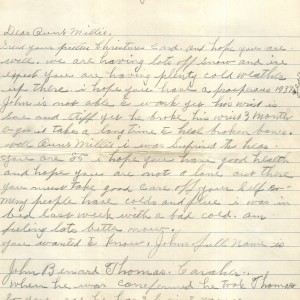 Dear Aunt Millie.
your Christmas Card and hope you are
well. we are having lots off snow and i
expect you are having plenty cold weather
up there. i hope you have a prosperous 1937.
John is not able to work yet his wrist is
sore and stiff yet he broke his wrist 3 month
ago it take a long time to heal broken bones.
well Aunt Millie i was surprised to hear
you are 85 i hope you have good health
and hope you are not a lone out there
you must take good care off your self so
many people have colds and i was in
bed last week with a bad cold. am
feeling lots better now.
you wanted to know, Johns full name is
John Benard Thomas. Caraher.
When he was confermed he took Thomas